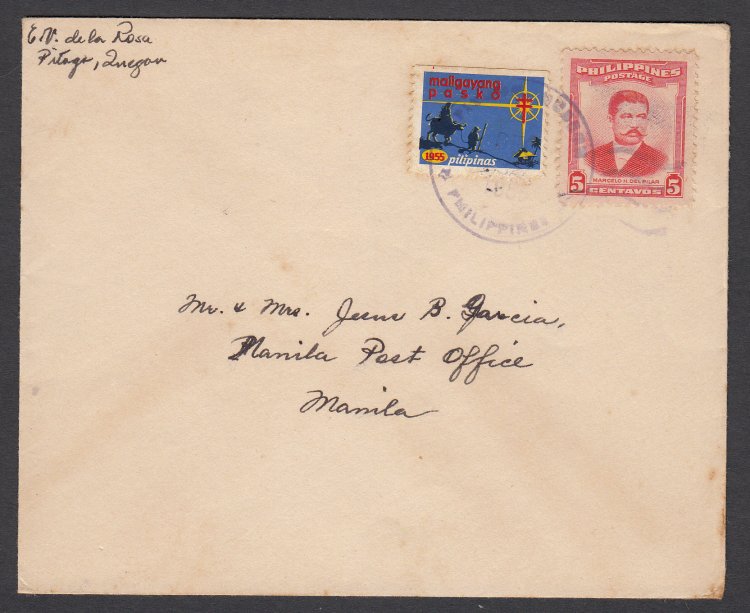 E.V. de la Rosa
Pitogo, Quezon
maligayang
pasko
1955 pilipinas
PHILIPPINES
POSTAGE
MARCELO H. DEL PILAR
5 CENTAVOS 5
PHILIPPINES
Mr. & Mrs. Jesus B. Garcia,
Manila Post Office
Manila